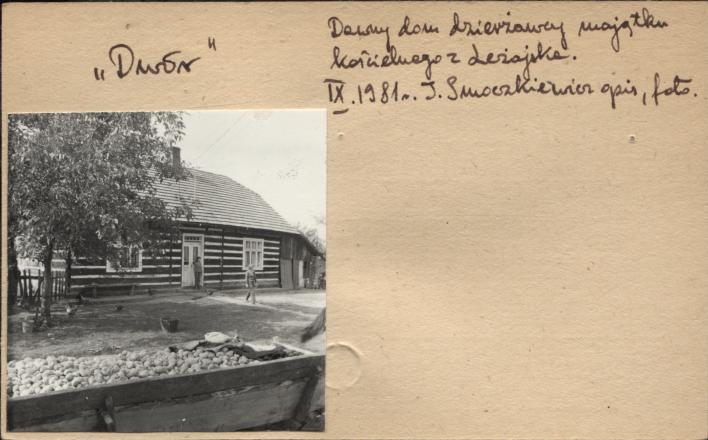 „Dwór"
Dawny dom dzierżawcy majątku
kościelnego z Leżajska.
IX.1981r. J. Smoczkiewicz opis, foto.